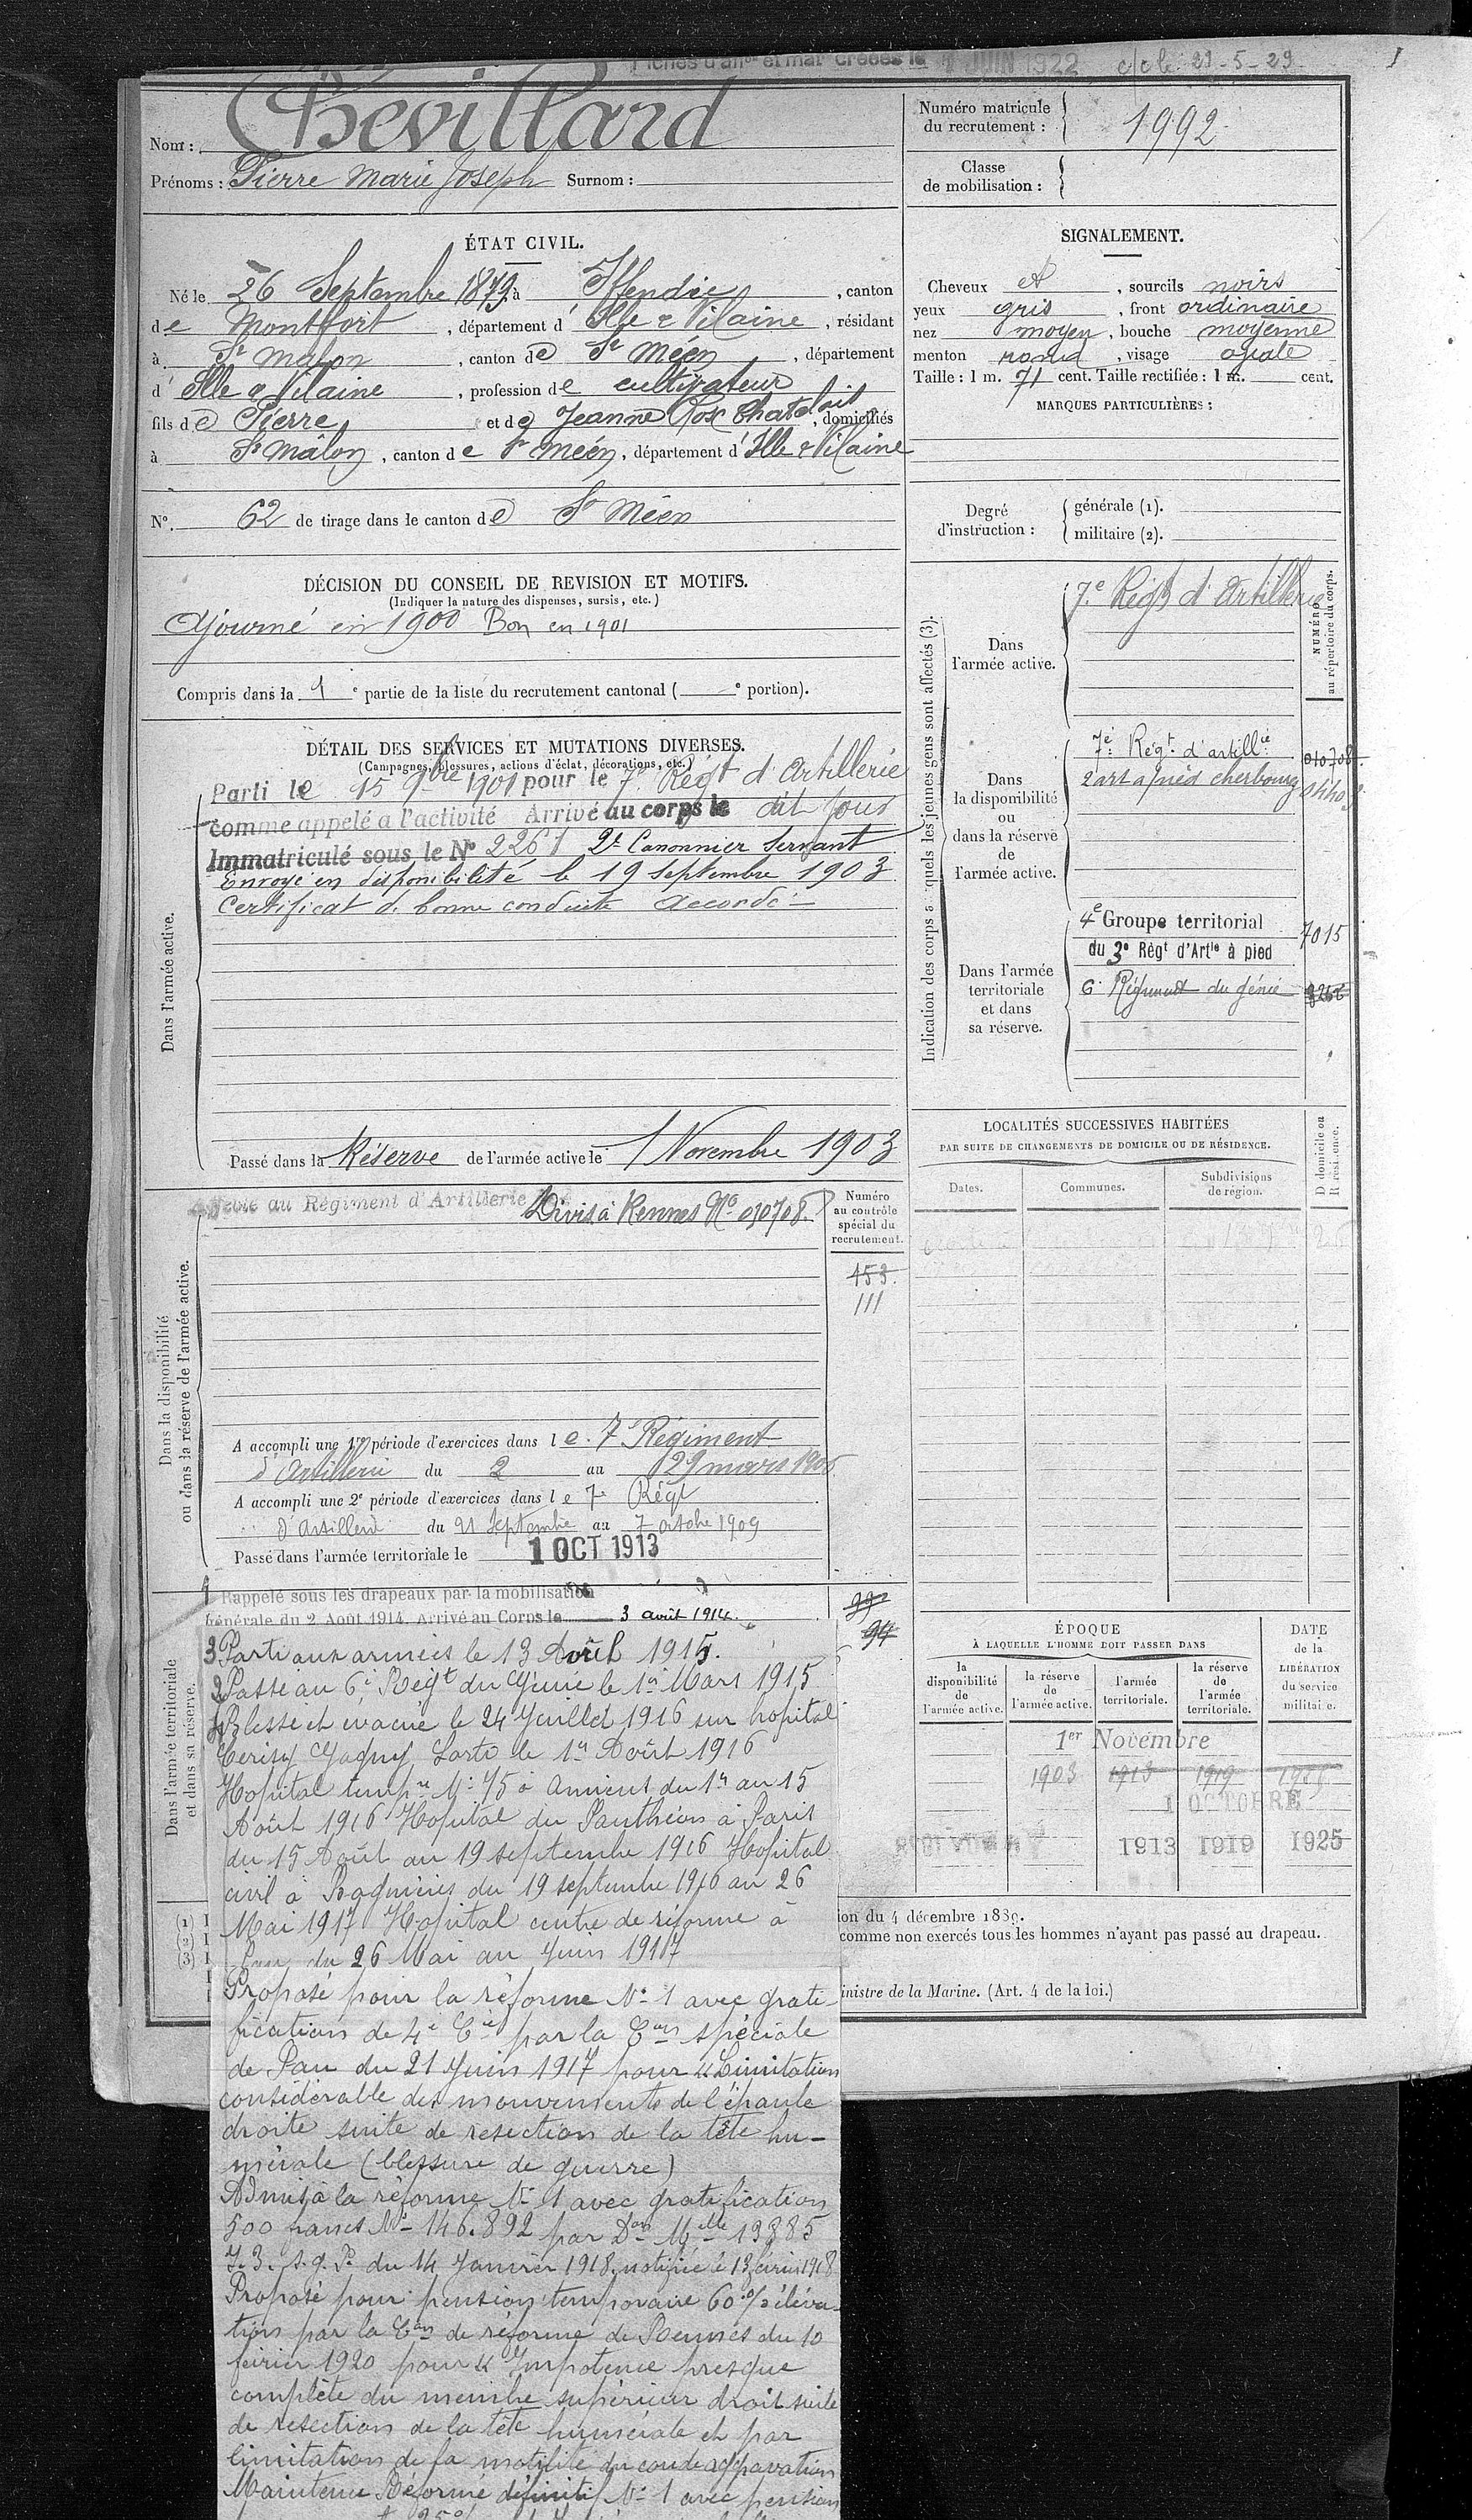 Fiches d'al et mat créées le 1 JUIN 1922 29-5-29
Nom : Chevillard
Prénoms : Pierre Marie Joseph Surnom :
Numéro matricule du recrutement : 1992
Classe de mobilisation :
ÉTAT CIVIL.
Né le 26 Septembre 1879, à Iffendic, canton
de Montfort, département d'Ille & Vilaine, résidant
à St Malon, canton de St Méen, département
d'Ille & Vilaine, profession de cultivateur
fils de Pierre et de Jeanne Rose Chatelais, domiciliés
à St Malon, canton de St Méen, département d'Ille & Vilaine
N°. 62 de tirage dans le canton de St Méen
SIGNALEMENT.
Cheveux et, sourcils noirs
yeux gris, front ordinaire
nez moyen, bouche moyenne
menton rond, visage ovale
Taille : 1 m. 71 cent. Taille rectifiée : 1 m. cent.
MARQUES PARTICULIÈRES :
Degré d'instruction : générale (1).
militaire (2).
DÉCISION DU CONSEIL DE REVISION ET MOTIFS.
(Indiquer la nature des dispenses, sursis, etc.)
Ajourné en 1900 Bon en 1901
Compris dans la 1e partie de la liste du recrutement cantonal ( e portion).
DÉTAIL DES SERVICES ET MUTATIONS DIVERSES.
(Campagnes, blessures, actions d'éclat, décorations, etc.)
Dans l'armée active.
Parti le 15 9bre 1901 pour le 7e Régt d'Artillerie
comme appelé a l'activité Arrivé au corps le dit jour
Immatriculé sous le N° 2261 2e Canonnier Servant
Envoyé en disponibilité le 19 septembre 1903
Certificat de bonne conduite Accordé
Passé dans la Réserve de l'armée active le 1 Novembre 1903
Indication des corps auxquels les jeunes gens sont affectés (3).
NUMÉRO au répertoire du corps.
Dans l'armée active.
7e Régt d'Artillerie
Dans la disponibilité ou dans la réserve de l'armée active.
7e Régt d'artillie 010708
2 art à pied cherbourg
Dans l'armée territoriale et dans sa réserve.
4e Groupe territorial
du 3e Régt d'Artie à pied 7015
6e Régiment du génie
Dans la disponibilité ou dans la réserve de l'armée active.
Affecté au Régiment d'Artillerie Divis à Rennes N° 010708
Numéro au contrôle spécial du recrutement.
153
111
A accompli une 1re période d'exercices dans le 7e Régiment
d'Artillerie du 2 au 29 mars 1906
A accompli une 2e période d'exercices dans le 7e Régt
d'Artillerie du 21 Septembre au 7 octobre 1909
Passé dans l'armée territoriale le 1 OCT 1913
LOCALITÉS SUCCESSIVES HABITÉES
PAR SUITE DE CHANGEMENTS DE DOMICILE OU DE RÉSIDENCE.
Dates. Communes. Subdivisions de région. D. domicile ou R. résidence.
Dans l'armée territoriale et dans sa réserve.
1 Rappelé sous les drapeaux par la mobilisation
générale du 2 Août 1914. Arrivé au Corps le 3 août 1914.
99
94
3 Parti aux armées le 13 Avril 1915.
2 Passé au 6e Régt du Génie le 1er Mars 1915
4 Blessé et évacué le 24 Juillet 1916 sur hopital
Cerisy Gagny Sorti le 1er Août 1916
Hopital tempre N° 45 à Amiens du 1er au 15
Août 1916 Hopital du Panthéon à Paris
du 15 Août au 19 septembre 1916 Hopital
civil à Bagnères du 19 septembre 1916 au 26
Mai 1917 Hopital centre de réforme à
Pau du 26 Mai au Juin 1917
Proposé pour la réforme N° 1 avec grati-
fication de 4e Cie par la Con spéciale
de Pau du 21 Juin 1917 pour "Limitation
considérable des mouvements de l'épaule
droite suite de résection de la tête hu-
mérale (blessure de guerre)
Admis à la réforme N° 1 avec gratification
500 francs N° 146.892 par Don Mielle 13885
du 14 Janvier 1918, notifiée le 13 février 1918
Proposé pour pension temporaire 60% éléva-
tion par la Con de réforme de Rennes du 10
février 1920 pour "Impotence presque
complète du membre supérieur droit suite
de résection de la tête humérale et par
limitation de la motilité du coude aggravation
Maintenu Réforme définitif N° 1 avec pension
ÉPOQUE
À LAQUELLE L'HOMME DOIT PASSER DANS
la disponibilité de l'armée active. la réserve de l'armée active. l'armée territoriale. la réserve de l'armée territoriale.
DATE de la LIBÉRATION du service militaire.
1er Novembre
1903 1913 1919
1 OCTOBRE
1913 1919 1925
(1) (2) (3)
ion du 4 décembre 1889.
comme non exercés tous les hommes n'ayant pas passé au drapeau.
inistre de la Marine. (Art. 4 de la loi.)